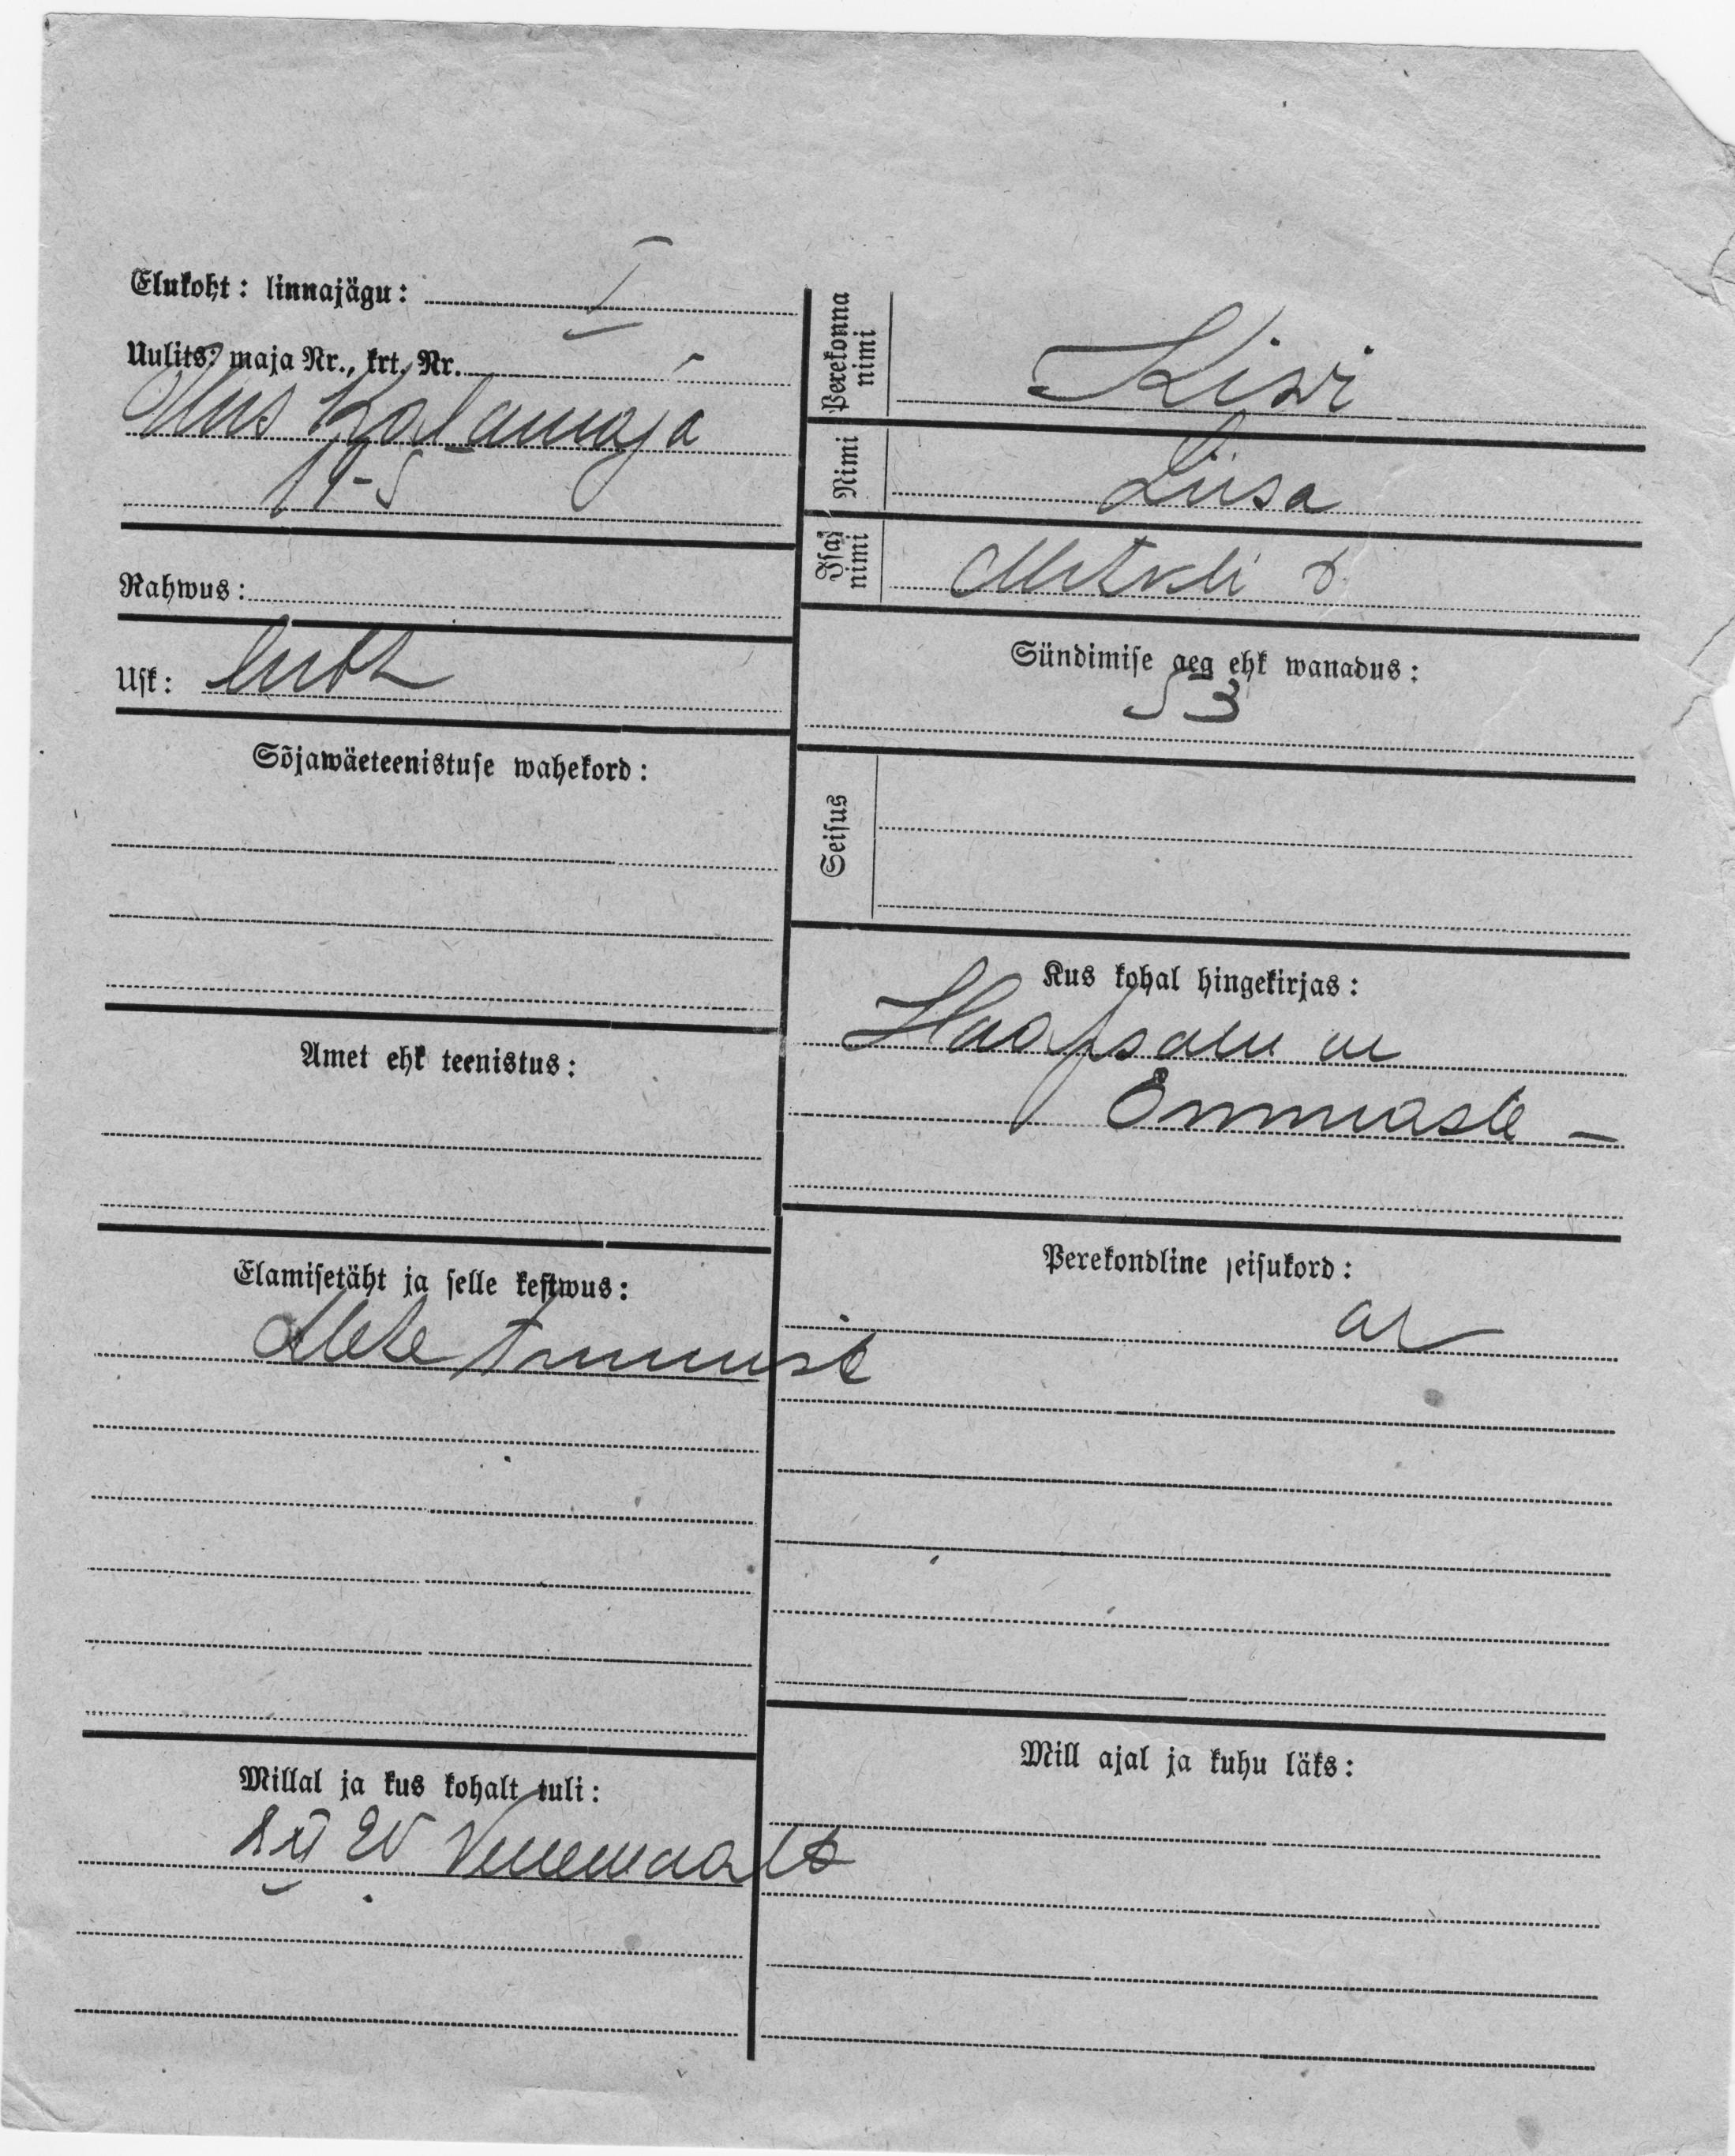 Elukoht: linnajägu: I
Uulits, maja Nr., krt. Nr.
Uus Kalamaja
19-5
Rahwus:
Usk: luth
Sõjawäeteenistuse wahekord:
Amet ehk teenistus:
Elamisetäht ja selle kestwus:
Millal ja kus kohalt tuli:
XII 20 Venemaalt
Perekonna nimi
Kiwi
Nimi
Liisa
Isa nimi
Mihkli t.
Sündimise aeg ehk wanadus:
53
Seisus
Kus kohal hingekirjas:
Haapsalu m
Emmaste –
Perekondline seisukord:
Mill ajal ja kuhu läks: